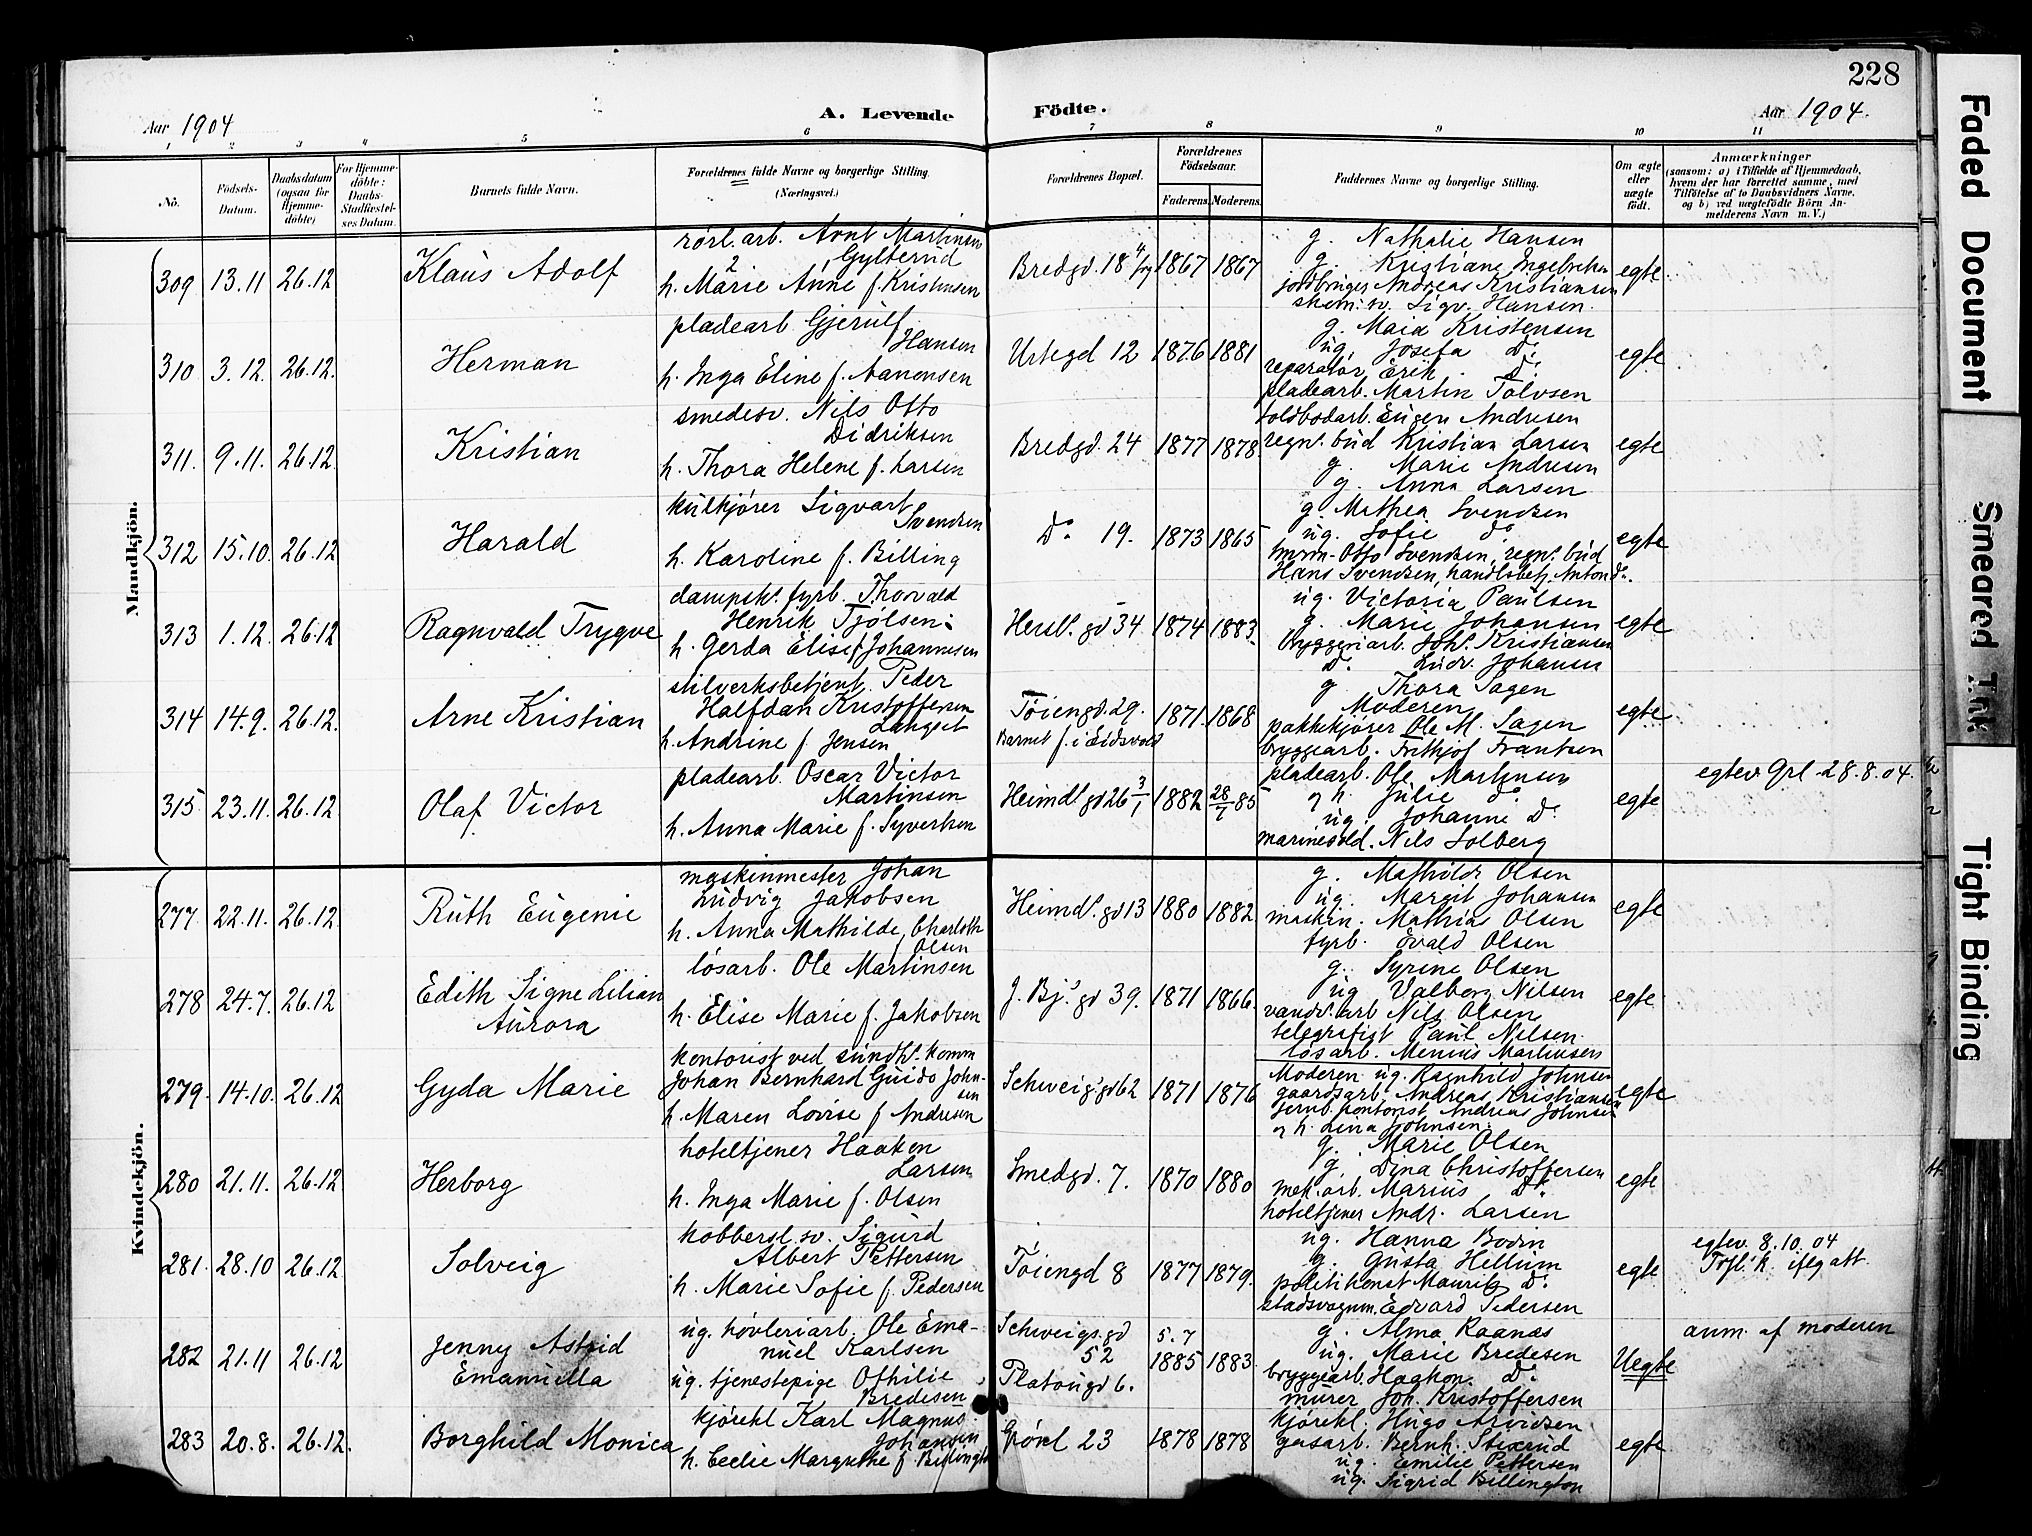 228
Aar 1904
A. Levende
Födte.
Aar 1904.
1 2 3 4 5 6 7 8 9 10 11
No.
Födsels-Datum.
Daabsdatum (ogsaa for Hjemmedöbte)
For Hjemmedöbte: Daabs-Stadfæstelses Datum.
Barnets fulde Navn.
Forældrenes fulde Navne og borgerlige Stilling.
(Næringsvei.)
Forældrenes Bopæl.
Forældrenes Födselsaar.
Faderens. Moderens.
Faddernes Navne og borgerlige Stilling.
Om ægte eller uægte födt.
Anmærkninger
(saasom: a) i Tilfælde af Hjemmedaab, hvem der har forrettet samme, med Tilföielse af to Daabsvidners Navne, og b) ved uægtefödte Börn Anmelderens Navn m. V.)
Mandkjön.
309 13.11 26.12 Klaus Adolf
rörl. arb. Arnt Martinsen
Gylterud
h. Marie Anne f. Kristensen
Bredgd. 18 1867 1867
g. Nathalie Hansen
g. Kristiane Ingebretsen
jordbruger Andreas Kristiansen
skom. sv. Sigv. Hansen.
egte
310 3.12. 26.12. Herman
pladearb Gjerulf
Hansen
h. Inga Eline f. Aanensen
Urtegd 12 1876 1881
g. Maia Kristensen
ug. Josefa Do
reparatør Erik Do
pladearb. Martin Tolvsen
egte
311. 9.11. 26.12. Kristian
smedesv. Nils Otto
Didriksen
h. Thora Helene f. Larsen
Bredgd. 24 1877 1878.
toldbodarb. Eugen Andresen
regns. bud Kristian Larsen
g. Marie Andresen
g. Anna Larsen
egte
312 15.10. 26.12 Harald
kulkjører Sigvart
Svendsen
h. Karoline f. Billing
Do 19. 1873 1865
g. Mathea Svendsen
ug. Sofie do
Otto Svendsen, regns. bud
Hans Svendsen, handlsbetj. Anton do.
egte
313 1.12. 26.12 Ragnvald Trygve
dampsk. fyrb. Thorvald
Henrik Tjølsen
h. Gerda Elise f. Johannesen
Hersl. gd 34 1874 1883
ug. Victoria Paulsen
g. Marie Johansen
bryggeriarb. Joh. Kristiansen
Do Ludv. Johansen
egte
314 14.9. 26.12. Arne Kristian
stilverksbetjent Peder
Halfdan Kristoffersen
Langset
h. Andrine f. Jensen
Töiengd. 29.
Barnet f. i Eidsvold
1871 1868
g. Thora Sagen
Moderen
pakkekjører Ole M. Sagen
bryggearb. Frithjof Frantsen
egte
315 23.11. 26.12 Olaf Victor
pladearb. Oscar Victor
Martinsen
h. Anna Marie f. Syvertsen
Heimdl. gd 26 3/1 1882 28/7 85
pladearb. Ole Martinsen
og h. Julie do
ug. Johanne Do
marinesold. Nils Solberg
egte
egtev. Grl. 28.8.04.
Kvindekjön.
277 22.11. 26.12. Ruth Eugenie
maskinmester Johan
Ludvig Jakobsen
h. Anna Mathilde Charloth
f. Olsen
Heimdl. gd 13 1880 1882
g. Mathilde Olsen
ug. Margit Johansen
maskin. Mathias Olsen
fyrb. Ovald Olsen
egte
278 24.7. 26.12 Edith Signe Lilian
Aurora
lösarb. Ole Martinsen
h. Elise Marie f. Jakobsen
J. Bj. gd 39. 1871 1866.
g. Syrine Olsen
ug Valborg Nilsen
vandv. arb Nils Olsen
telegrafist Paul Nilsen
lösarb. Menius Martinsen
egte
279. 14.10. 26.12 Gyda Marie
kontorist ved sundh. komm
Johan Bernhard Guido John-
sen
h. Maren Lovise f. Andresen
Schweig. gd 62 1871 1876
Moderen ug. Ragnhild Johnsen
gaardsarb. Andreas Kristiansen
jernb. kontorist Andreas Johnsen
og h. Lina Johnsen.
egte
280 21.11. 26.12 Herborg
hoteltjener Haaken
Larsen
h. Inga Marie f. Olsen
Smedgd. 7. 1870 1880
g. Marie Olsen
g. Dina Christoffersen
mek. arb. Marius do
hoteltjener Andr. Larsen
egte
281. 28.10 26.12 Solveig
kobbersl. sv. Sigurd
Albert Pettersen
h. Marie Sofie f. Pedersen
Töiengd 8 1877 1879.
ug. Hanna Bodin
g. Gusta Hellum
politikonst Mauritz Do
stadsvognm. Edvard Pedersen
egte
egtev. 8.10.04
Trfl. k. iflg att
282 21.11 26.12 Jenny Astrid
Emanuella
ug. høvleriarb. Ole Ema-
nuel Karlsen
ug. tjenestepige Othilie
Bredesen
Schweigs. gd
52
Platougd 6.
5.7
1885 1883.
g. Alma Raanas
ug. Marie Bredesen
bryggearb. Haakon Do
murer Joh. Kristoffersen
Uegte
anm. af moderen
283 20.8. 26.12. Borghild Monica
kjørekl Karl Magnus
Johansen
h. Cecilie Margrethe f. Billington
Grönl 23 1878 1878
kjørekl. Hugo Arvidsen
gasarb. Bernh. Stixrud
ug. Emilie Pettersen
ug. Sigrid Billington
egte
Faded Document
Smeared Ink
Tight Binding